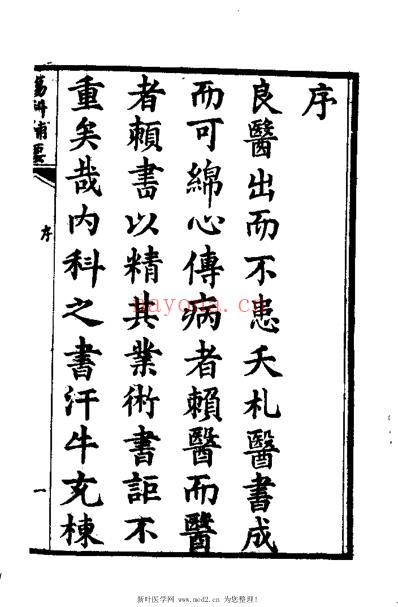 序
良醫出而不患夭札醫書成
而可綿心傳病者賴醫而醫
者賴書以精其業術書詎不
重矣哉内科之書汗牛充棟
傷科補要
序
一
nayona.cn
新叶医学网 www.med2.cn 为您整理！